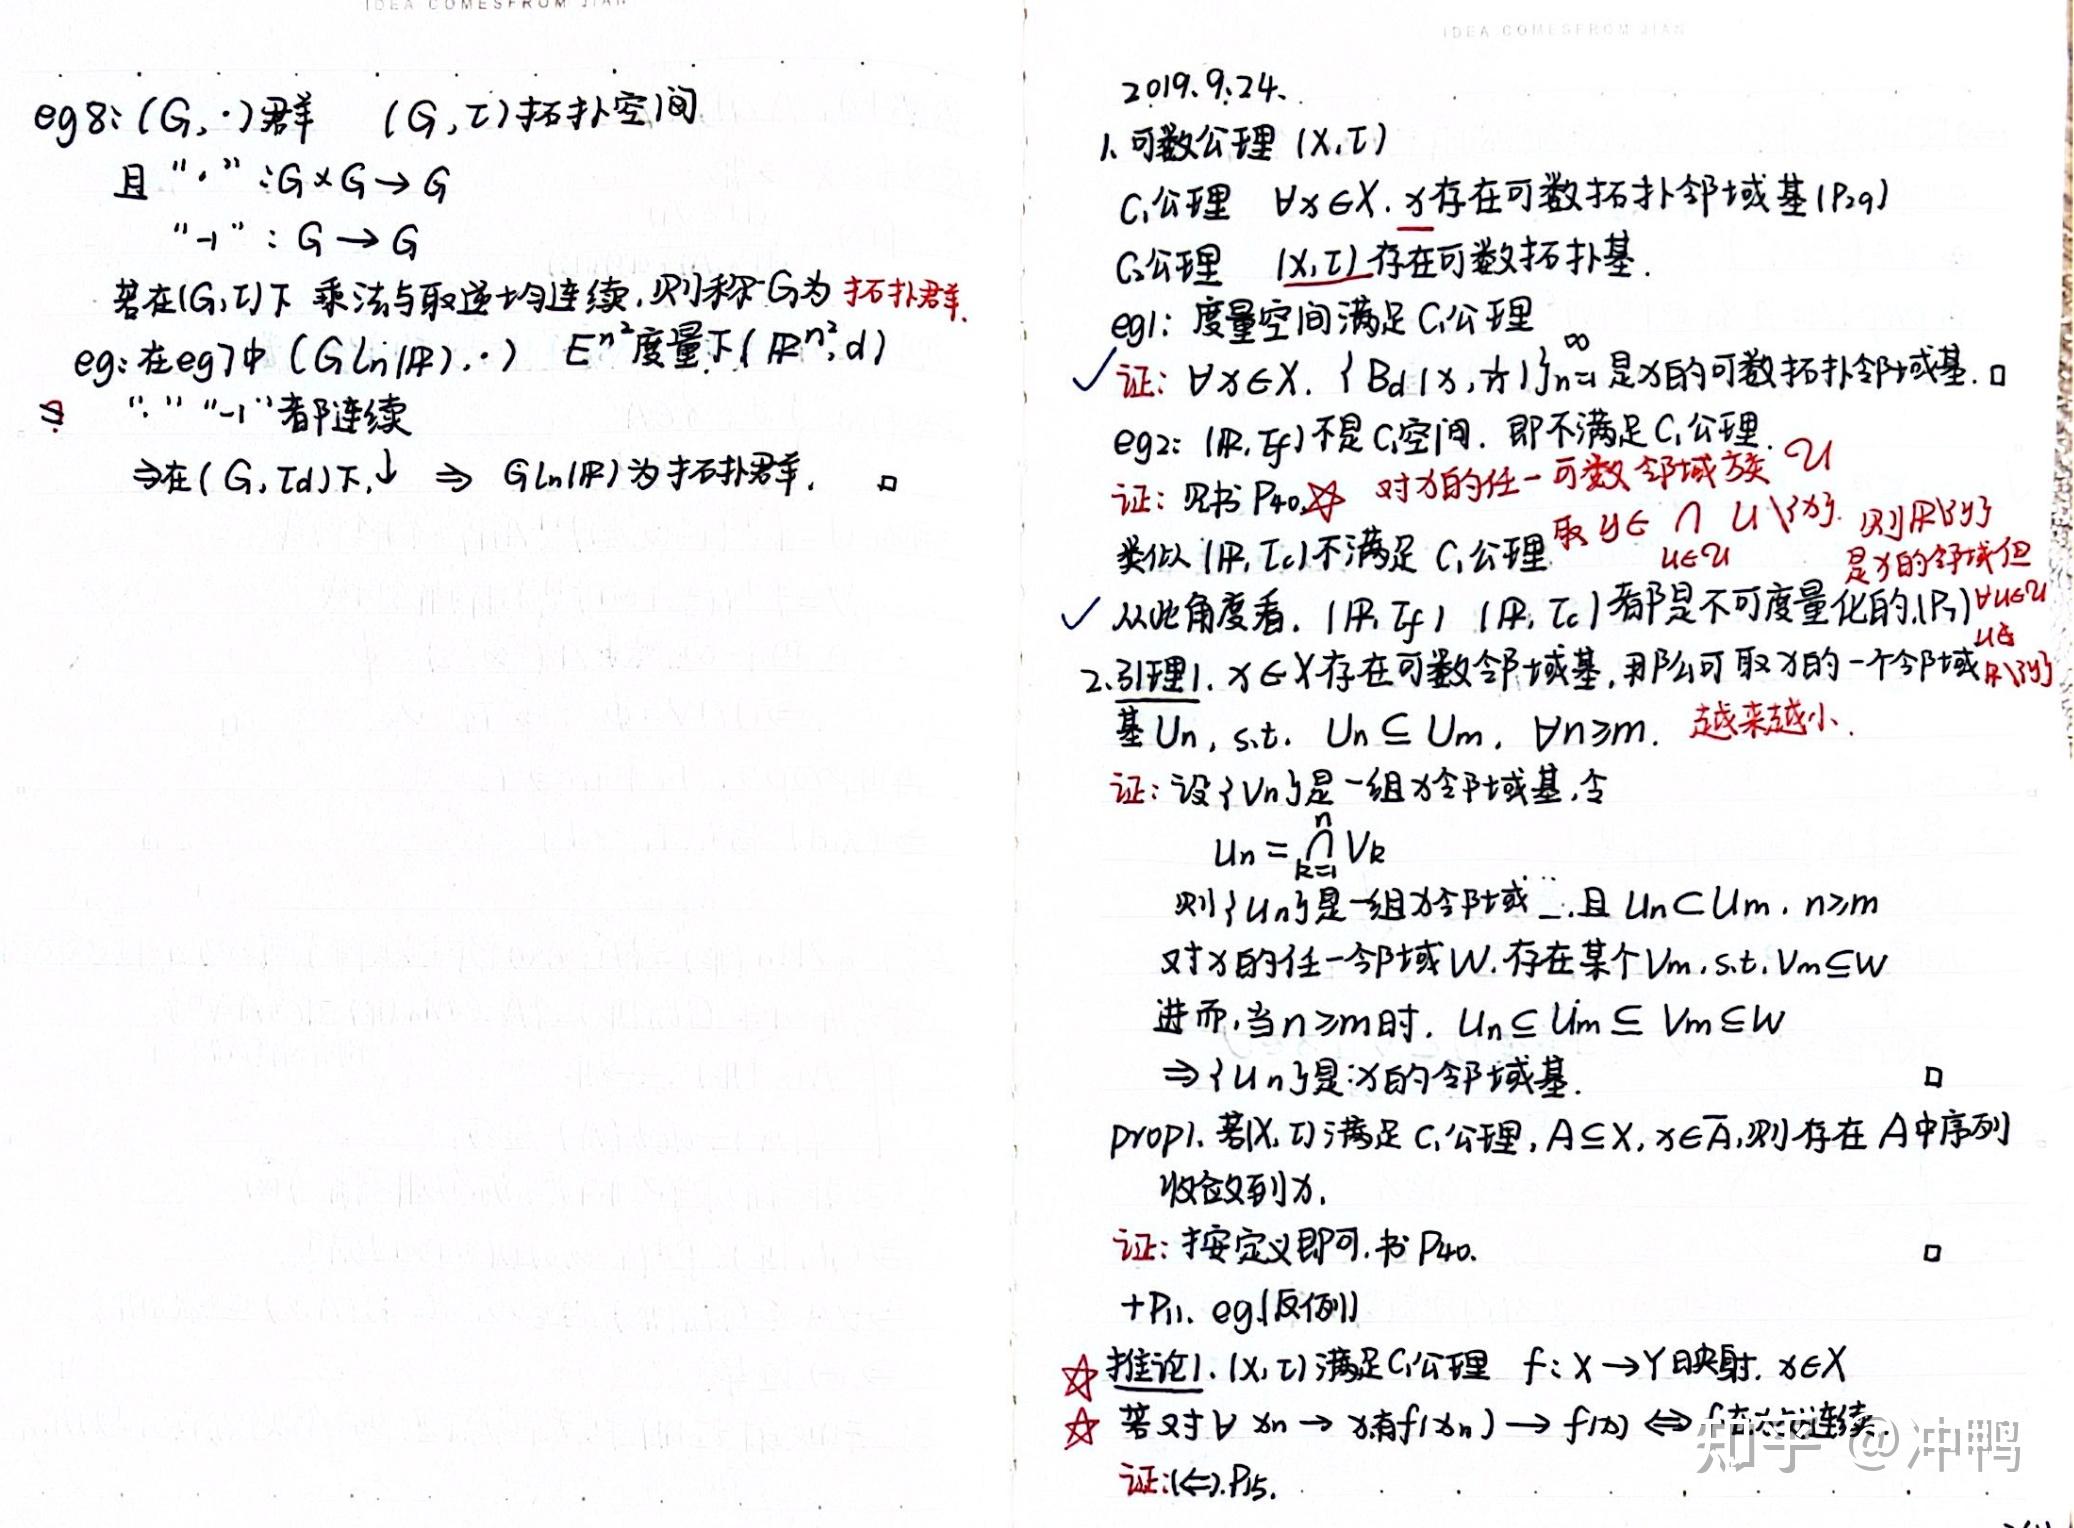 IDEA COMESFROM JIAN
eg8: (G, ·)群 (G, τ)拓扑空间
且 "·" : G×G→G
"-1" : G→G
若在(G,τ)下 乘法与取逆均连续,则称G为 拓扑群.
eg: 在eg7中 (GLn(ℝ), ·) E^{n²}度量下 (ℝ^{n²}, d)
⇒ "·" "-1"都连续
⇒在(G, τd)下,↓ ⇒ GLn(ℝ)为拓扑群. □
IDEA COMESFROM JIAN
2019.9.24.
1. 可数公理 (X,τ)
C₁公理 ∀x∈X. x存在可数拓扑邻域基(P29)
C₂公理 (X,τ)存在可数拓扑基.
eg1: 度量空间满足C₁公理
✓ 证: ∀x∈X. {Bd(x, 1/n)}_{n=1}^∞ 是x的可数拓扑邻域基. □
eg2: (ℝ, τf)不是C₁空间. 即不满足C₁公理.
证: 见书P40.☆ 对x的任一可数邻域族 𝒰
取 y∈ ∩_{U∈𝒰} U\{x}. 则ℝ\{y}
是x的邻域但
∀U∈𝒰
U⊄
ℝ\{y}
类似(ℝ, τc)不满足C₁公理.
✓ 从此角度看. (ℝ, τf) (ℝ, τc)都是不可度量化的.(P7)
2. 引理1. x∈X存在可数邻域基,那么可取x的一个邻域
基Un, s.t. Un⊆Um, ∀n≥m. 越来越小.
证: 设{Vn}是一组x邻域基,令
Un = ∩_{k=1}^{n} Vk
则{Un}是一组x邻域…. 且Un⊂Um. n≥m
对x的任一邻域W. 存在某个Vm. s.t. Vm⊆W
进而,当n≥m时. Un⊆Um⊆Vm⊆W
⇒{Un}是x的邻域基. □
prop1. 若(X,τ)满足C₁公理, A⊆X, x∈A̅, 则存在A中序列
收敛到x.
证: 按定义即可. 书P40. □
+P11. eg1(反例)
☆ 推论1. (X,τ)满足C₁公理 f: X→Y映射. x∈X
☆ 若对∀ xn→x有f(xn)→f(x) ⇔ f在x点连续.
证:(⇐).P15.
知乎 @冲鸭